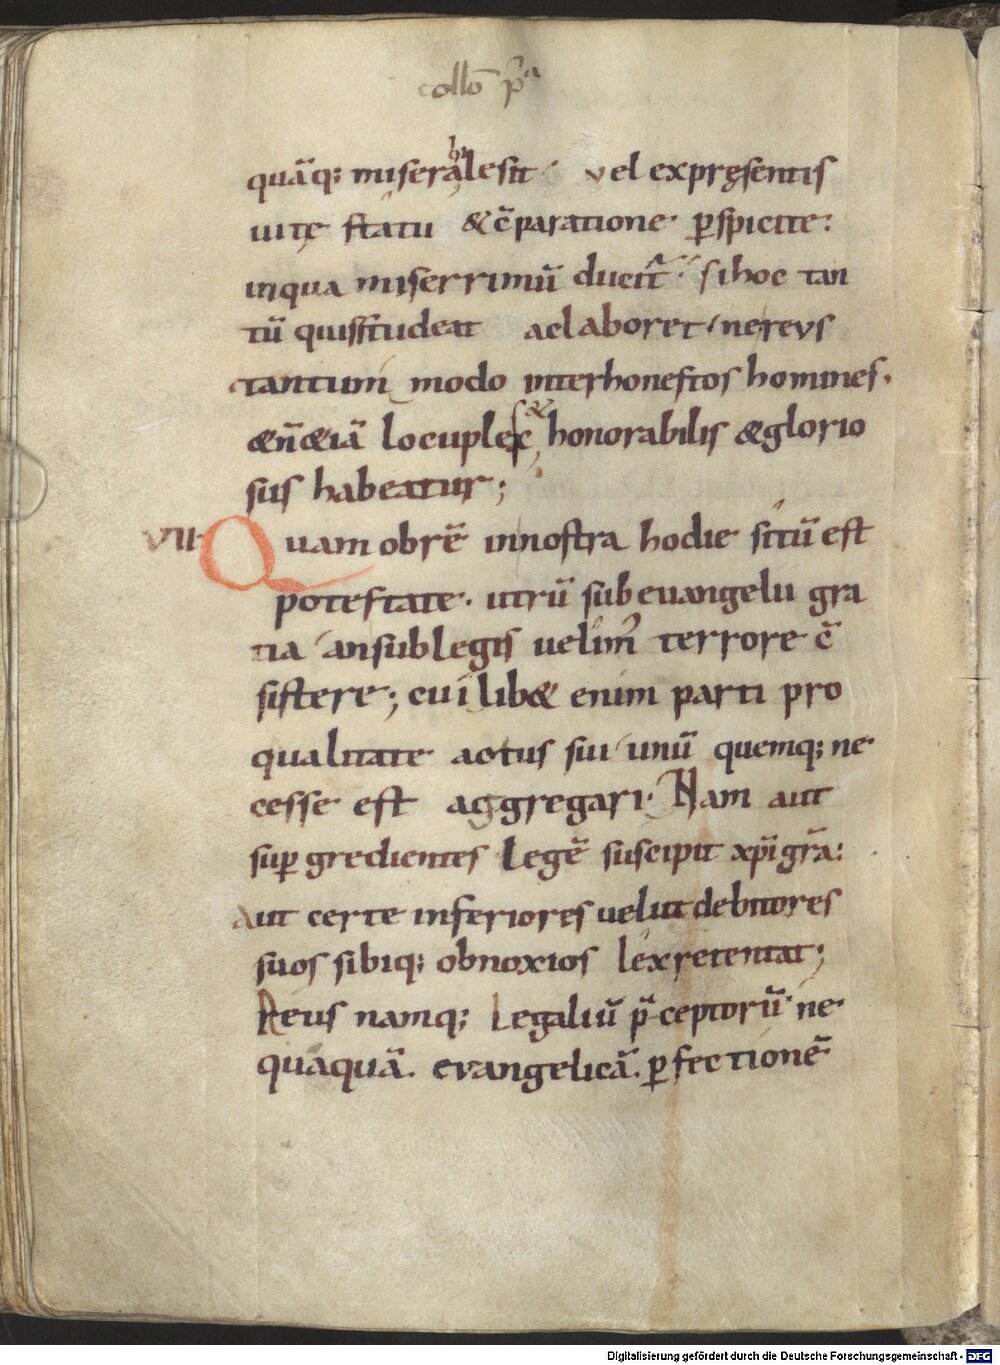 collō pª
quāq; miserabilesit· vel expręsentis
uitę statu &c̄paratione· pspicite:
inqua miserrimū ducit̄· sihoc tan
tū quisstudeat aclaboret· nereus
tantum modo interhonestos homines·
&n̄&iā locuplex & honorabilis &glorio
sus habeatur;
VII· Quam obrē innostra hodie sitū est
potestate· utrū subeuangelii gra
tia ansublegis uelim̄ terrore c̄
sistere; cui lib& enim parti pro
qualitate actus sui unū quemq; ne
cesse est aggregari· Nam aut
sup gredientes legē suscipit xp̄i gr̄a:
Aut certe inferiores uelut debitores
suos sibiq; obnoxios lex retentat;
Reus namq; Legaliū p̄ceptorū ne
quaquā. evangelicā. pfectionē
Digitalisierung gefördert durch die Deutsche Forschungsgemeinschaft - DFG